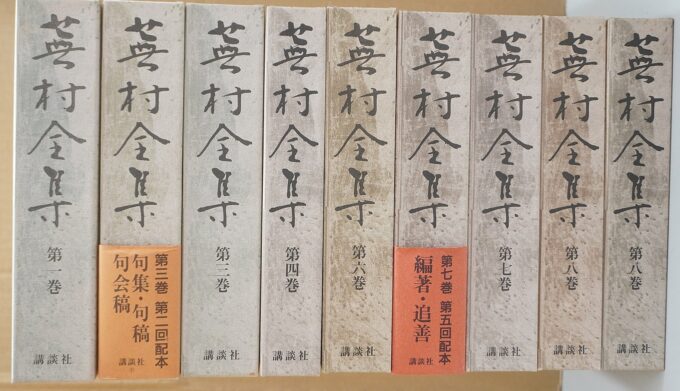 蕪村全集
第一巻
講談社
蕪村全集
第三巻 第二回配本
句集・句稿
句会稿
講談社
蕪村全集
第三巻
講談社
蕪村全集
第四巻
講談社
蕪村全集
第六巻
講談社
蕪村全集
第七巻 第五回配本
編著・追善
講談社
蕪村全集
第七巻
講談社
蕪村全集
第八巻
講談社
蕪村全集
第八巻
講談社